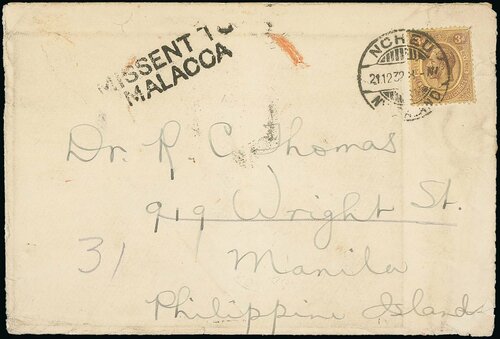 MISSENT TO
MALACCA
NCHEU
21.12.32
3d
Dr. R C Thomas
919 Wright St.
31
Manila
Philippine Islands